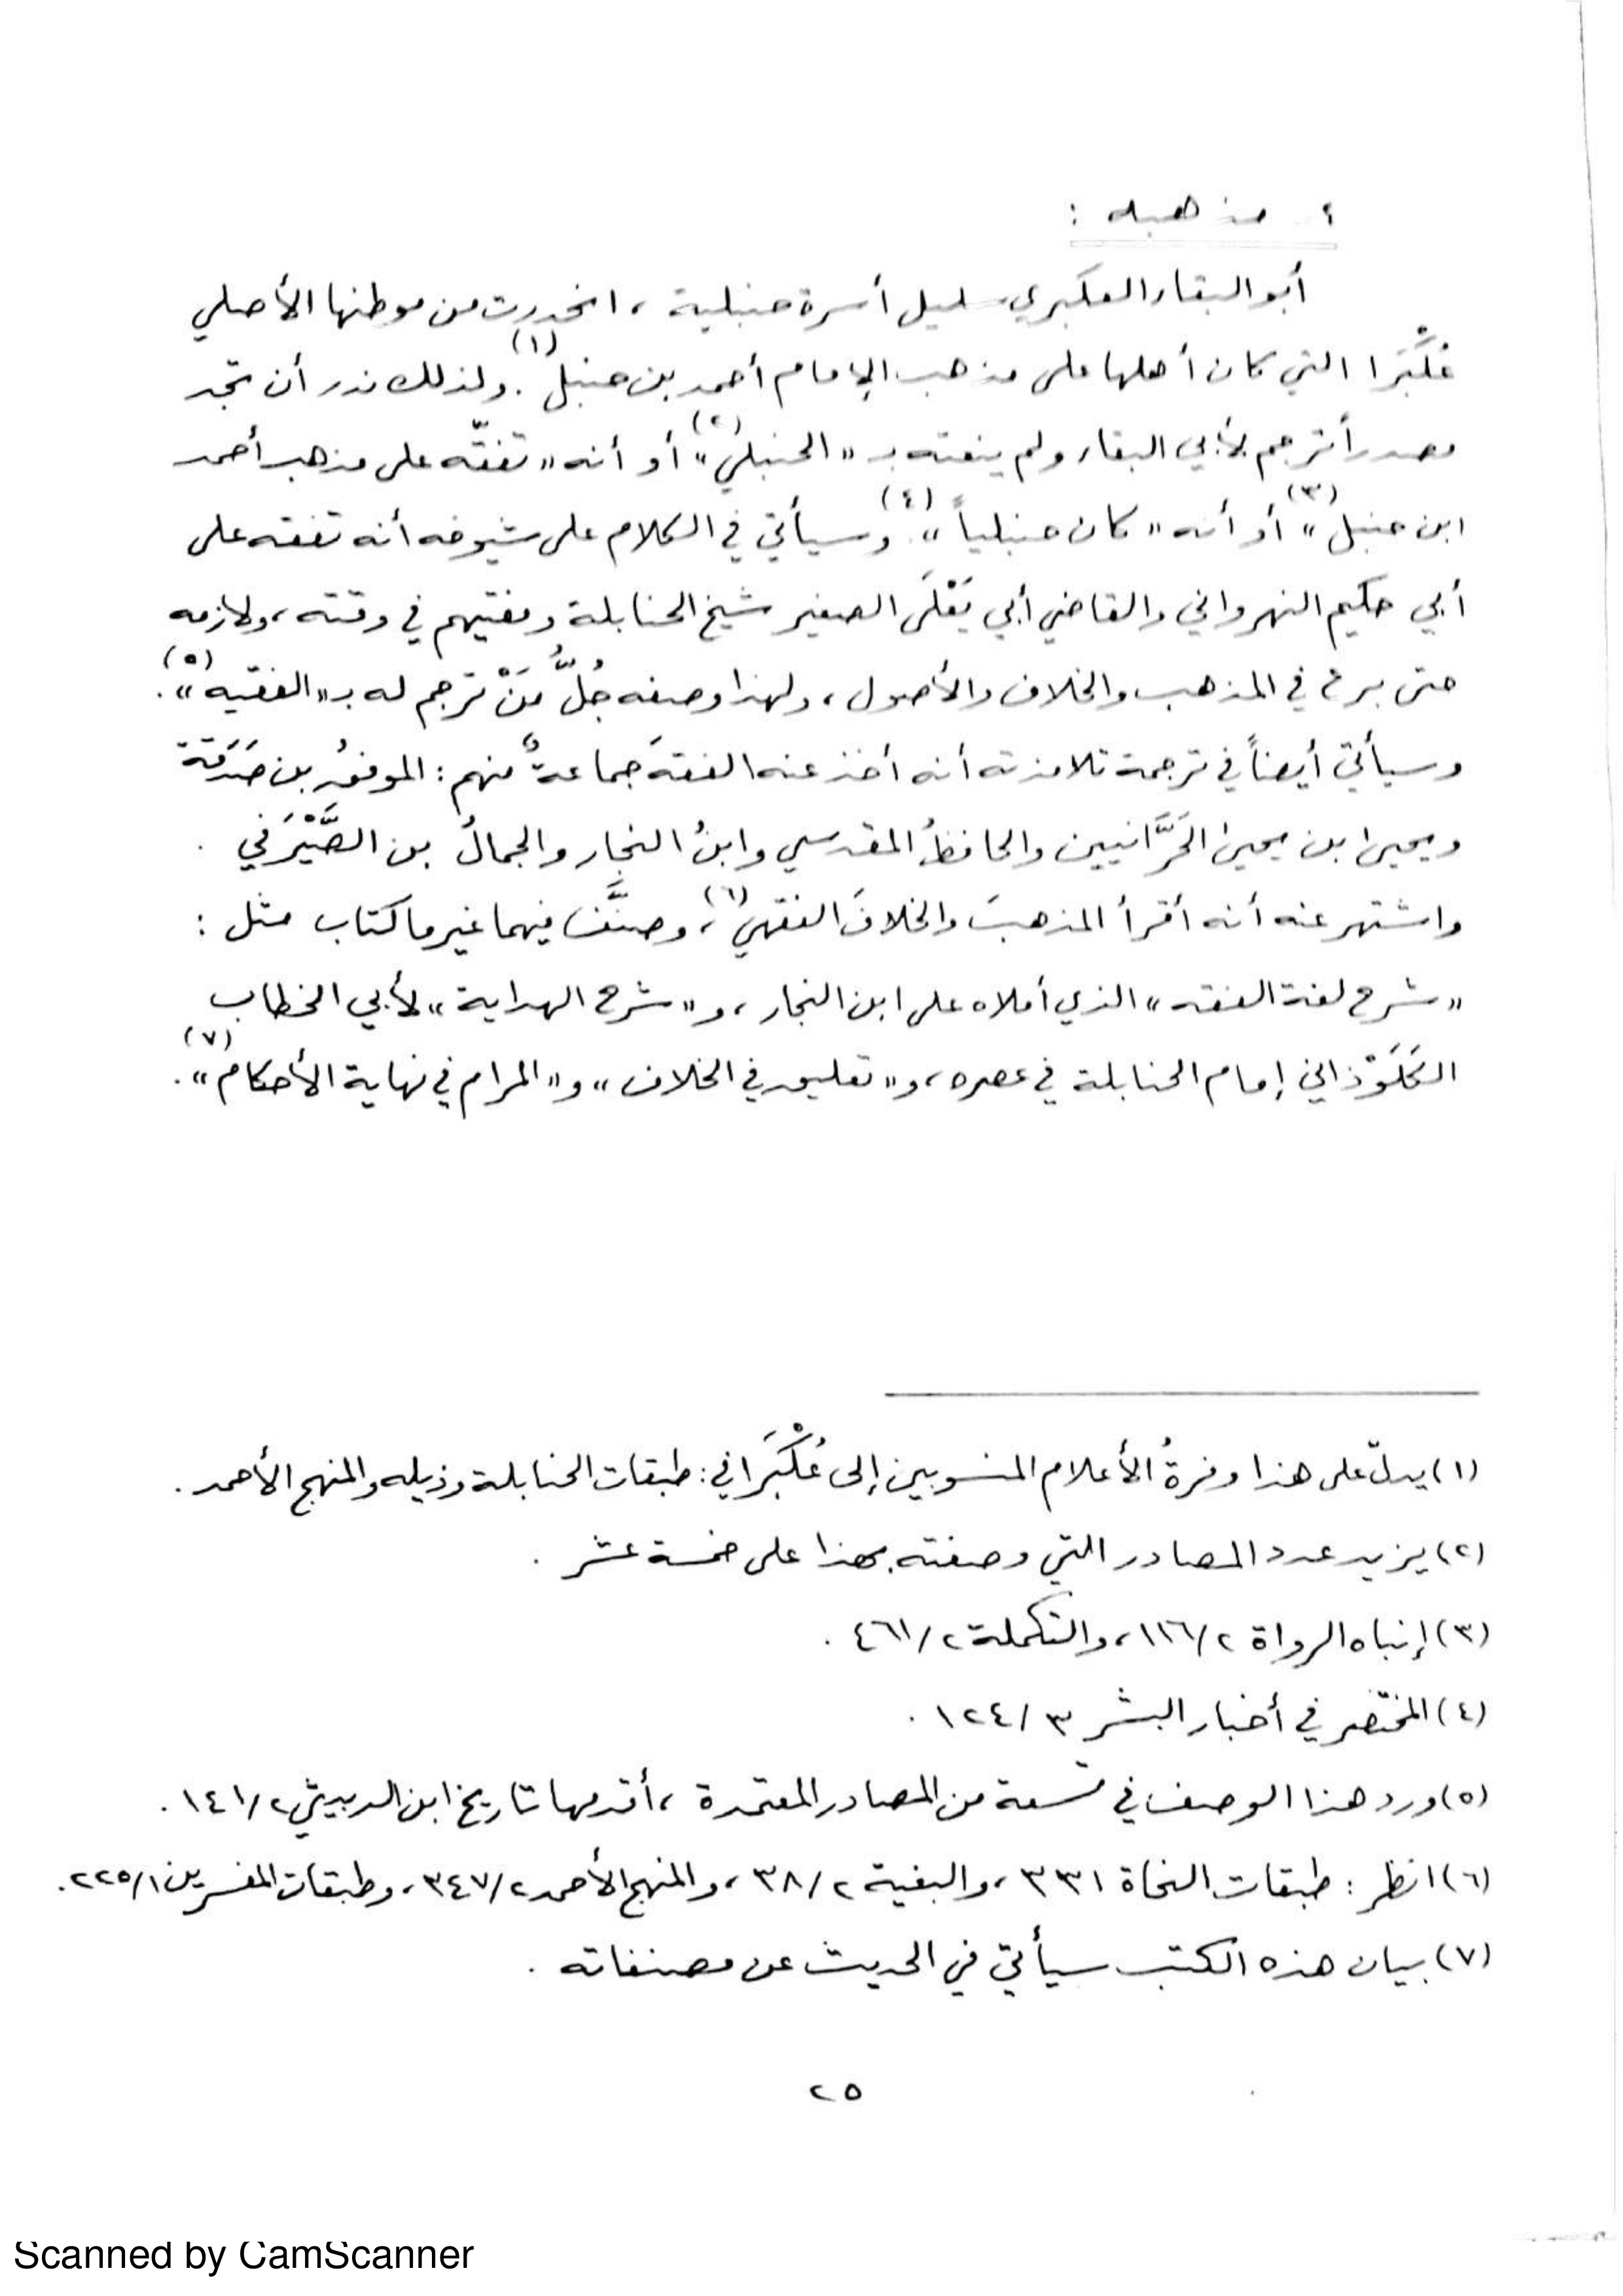 ٤ - مذهبه :
أبو البقاء العكبري سليل أسرة حنبلية ، انحدرت من موطنها الأصلي
عُكْبَرا التي كان أهلها على مذهب الإمام أحمد بن حنبل (١) . ولذلك ندر أن تجد
مصدراً ترجم لأبي البقاء ولم ينعته بـ « الحنبلي » (٢) أو أنه « تفقّه على مذهب أحمد
ابن حنبل » (٣) أو أنه « كان حنبلياً » (٤) . وسيأتي في الكلام على شيوخه أنه تفقه على
أبي حكيم النهرواني والقاضي أبي يَعْلَى الصغير شيخ الحنابلة ومفتيهم في وقته ، ولازمه
حتى برع في المذهب والخلاف والأصول ، ولهذا وصفه جُلُّ مَنْ ترجم له بـ « الفقيه » (٥) .
وسيأتي أيضاً في ترجمة تلامذته أنه أخذ عنه الفقهَ جماعةٌ منهم : الموفقُ بن صَدَقَة
ويحيى ابن يحيى الحَرَّانيين والحافظُ المقدسي وابنُ النجار والجمالُ بن الصَّيْرَفي .
واشتهر عنه أنه أقرأ المذهبَ والخلافَ الفقهي (٦) ، وصنَّف فيهما غير ما كتاب مثل :
« شرح لغة الفقه » الذي أملاه على ابن النجار ، و « شرح الهداية » لأبي الخطاب
الكَلَوْذاني إمام الحنابلة في عصره ، و « تعليق في الخلاف » و « المرام في نهاية الأحكام » (٧) .
(١) يدلّ على هذا وفرةُ الأعلام المنسوبين إلى عُكْبَرا في : طبقات الحنابلة وذيله والمنهج الأحمد .
(٢) يزيد عدد المصادر التي وصفته بهذا على خمسة عشر .
(٣) إنباه الرواة ٢ / ١١٦ ، والتكملة ٢ / ٤٦١ .
(٤) المختصر في أخبار البشر ٣ / ١٢٤ .
(٥) ورد هذا الوصف في تسعة من المصادر المعتمدة ، أقدمها تاريخ ابن الدبيثي ٢ / ١٤١ .
(٦) انظر : طبقات النحاة ٣٣١ ، والبغية ٢ / ٣٨ ، والمنهج الأحمد ٢ / ٣٤٧ ، وطبقات المفسرين ١ / ٢٢٥ .
(٧) بيان هذه الكتب سيأتي في الحديث عن مصنفاته .
٢٥
Scanned by CamScanner